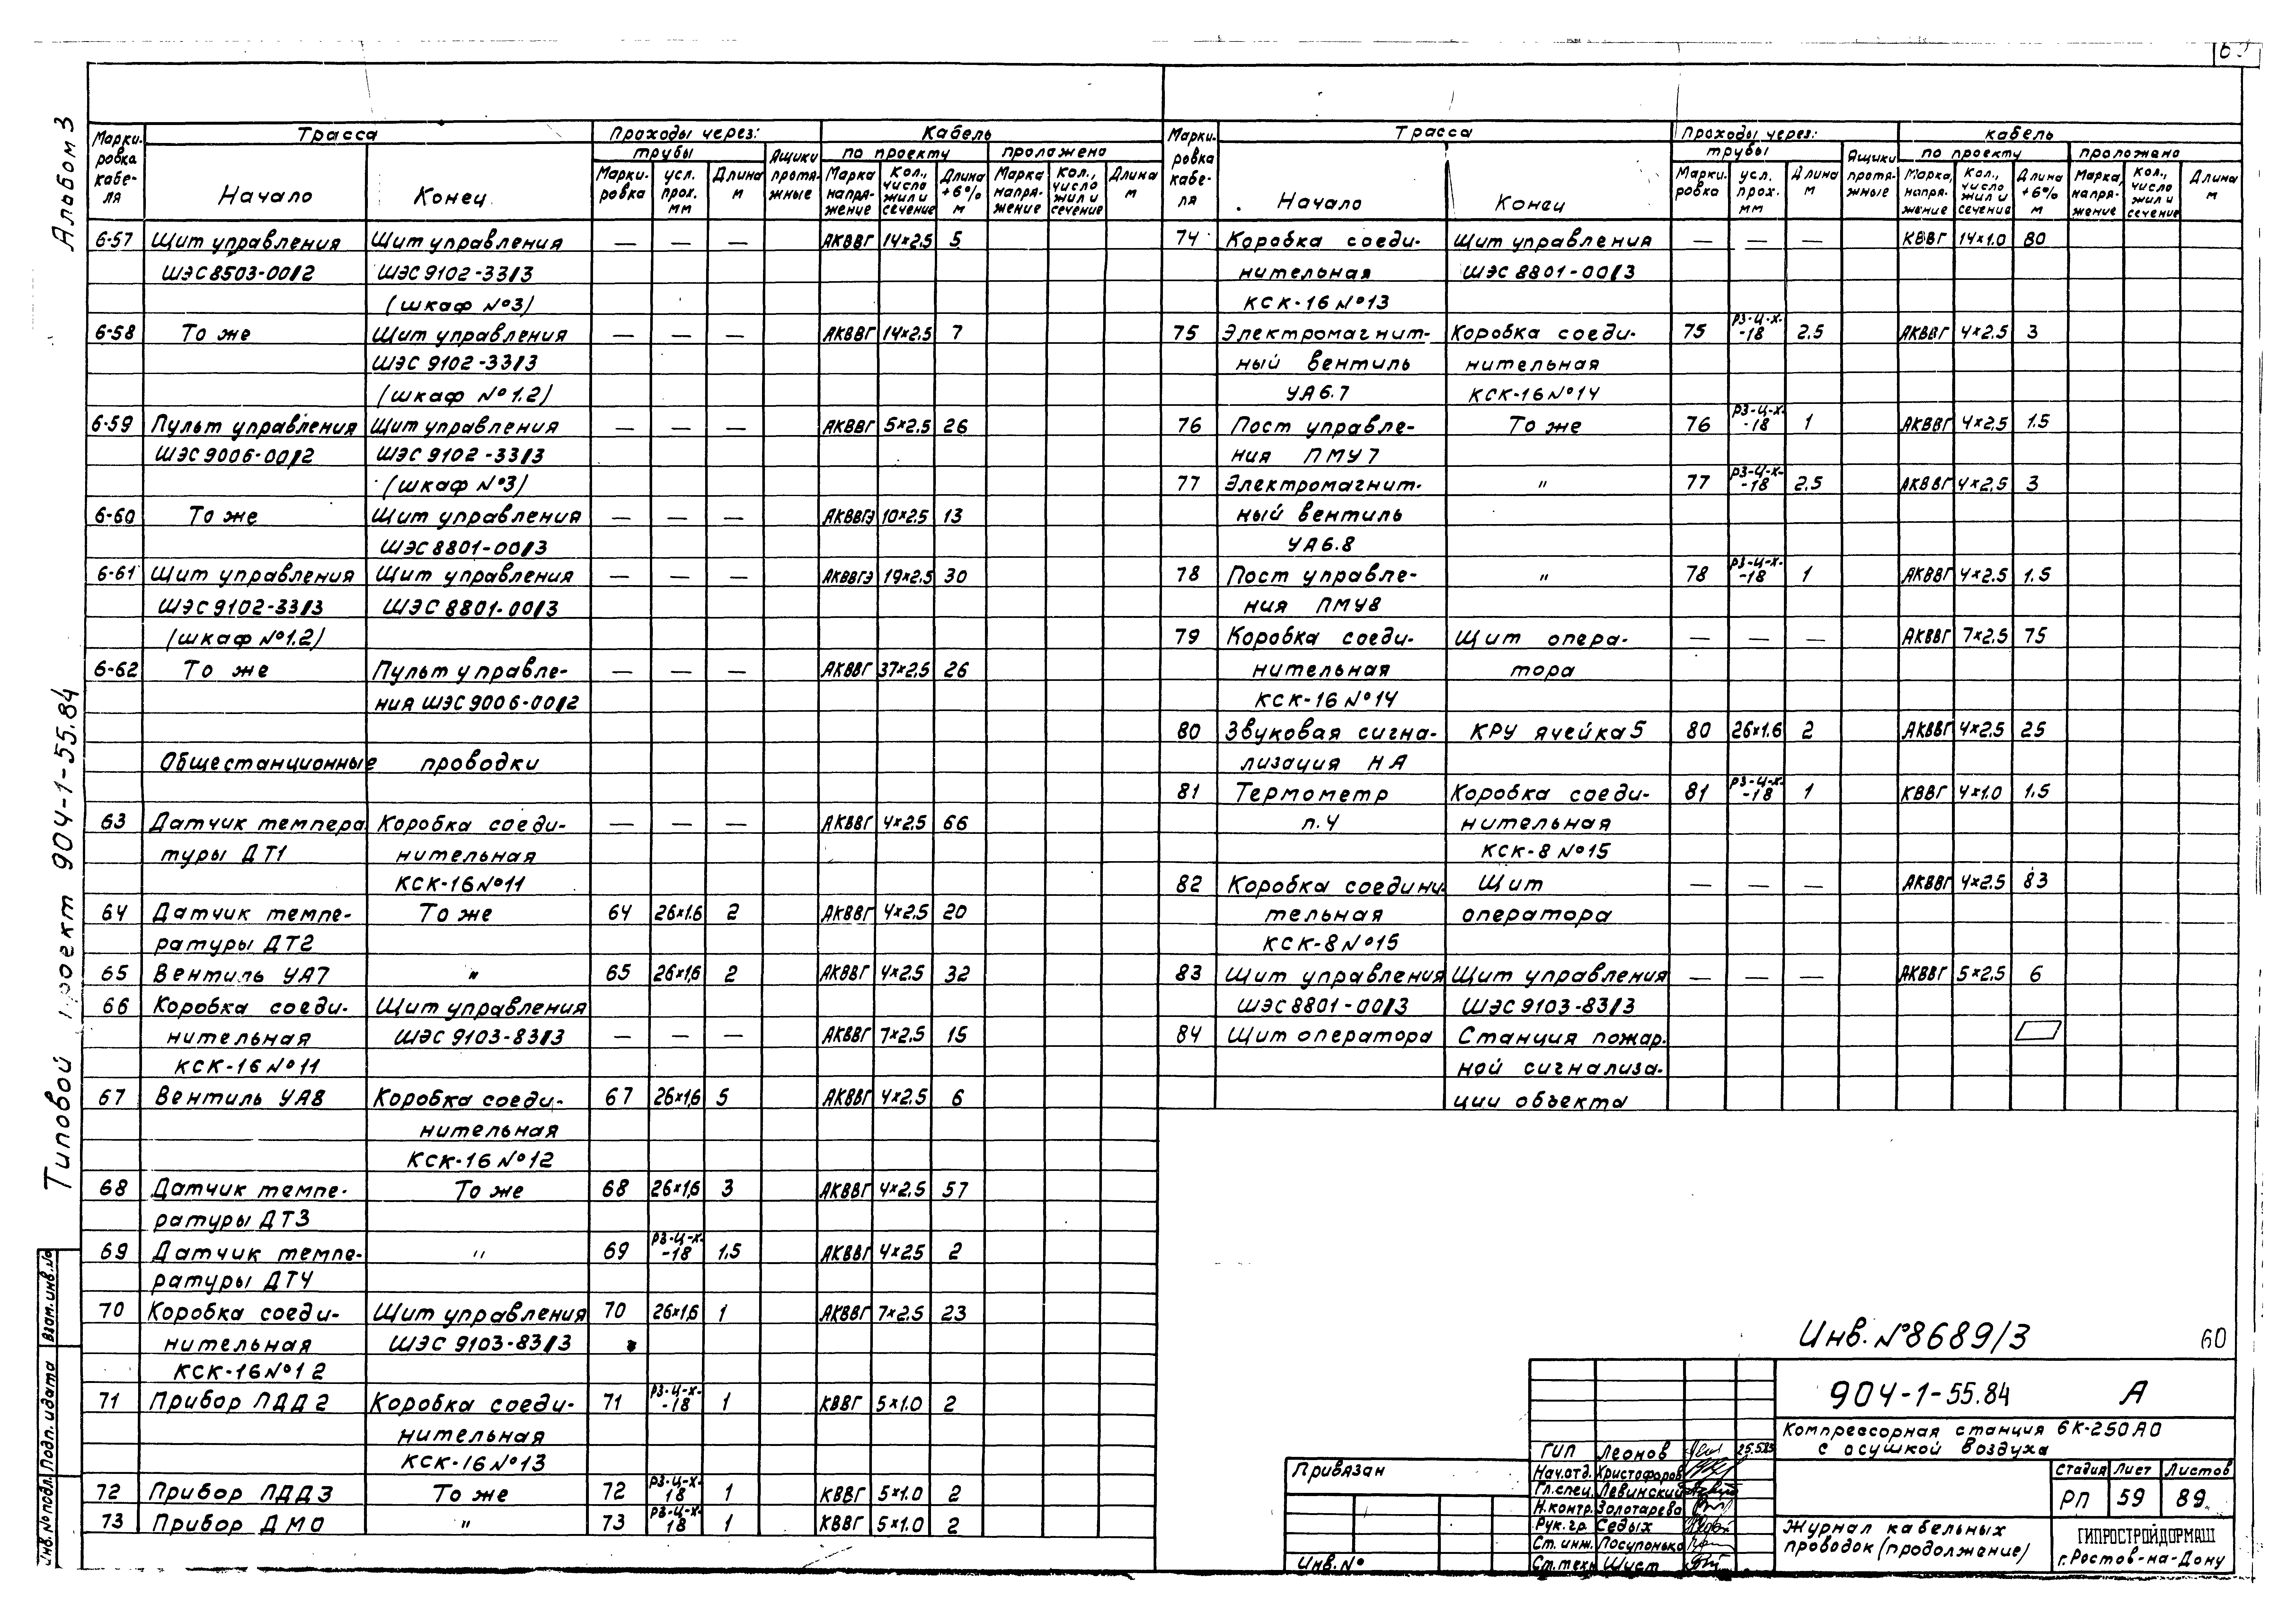 Альбом 3
Типовой проект 904-1-55.84
Марки-ровка кабе-ля | Трасса | Проходы через: | Кабель
трубы | Ящики протя-жные | по проекту | проложено
Начало | Конец | Марки-ровка | усл. прох. мм | Длина м | Марка напря-жение | Кол., число жил и сечение | Длина +6% м | Марка напря-жение | Кол., число жил и сечение | Длина м
6-57 Щит управления Щит управления — — — АКВВГ 14×2.5 5
ШЭС 8503-00/2 ШЭС 9102-33/3
(шкаф №3)
6-58 То же Щит управления — — — АКВВГ 14×2.5 7
ШЭС 9102-33/3
(шкаф №1.2)
6-59 Пульт управления Щит управления — — — АКВВГ 5×2.5 26
ШЭС 9006-00/2 ШЭС 9102-33/3
(шкаф №3)
6-60 То же Щит управления — — — АКВВГЭ 10×2.5 13
ШЭС 8801-00/3
6-61 Щит управления Щит управления — — — АКВВГЭ 19×2.5 30
ШЭС 9102-33/3 ШЭС 8801-00/3
(шкаф №1.2)
6-62 То же Пульт управле- — — — АКВВГ 37×2.5 26
ния ШЭС 9006-00/2
Общестанционные проводки
63 Датчик темпера Коробка соеди- — — — АКВВГ 4×2.5 66
туры ДТ1 нительная
КСК-16 №11
64 Датчик темпе- То же 64 26×1.6 2 АКВВГ 4×2.5 20
ратуры ДТ2
65 Вентиль УА7 " 65 26×1,6 2 АКВВГ 4×2.5 32
66 Коробка соеди- Щит управления
нительная ШЭС 9103-83/3 — — — АКВВГ 7×2.5 15
КСК-16 №11
67 Вентиль УА8 Коробка соеди- 67 26×1,6 5 АКВВГ 4×2.5 6
нительная
КСК-16 №12
68 Датчик темпе- То же 68 26×1,6 3 АКВВГ 4×2.5 57
ратуры ДТ3
69 Датчик темпе- " 69 РЗ-Ц-Х--18 1.5 АКВВГ 4×2.5 2
ратуры ДТ4
70 Коробка соеди- Щит управления 70 26×1,6 1 АКВВГ 7×2.5 23
нительная ШЭС 9103-83/3
КСК-16 №12
71 Прибор ПДД2 Коробка соеди- 71 РЗ-Ц-Х--18 1 КВВГ 5×1.0 2
нительная
КСК-16 №13
72 Прибор ПДД3 То же 72 РЗ-Ц-Х-18 1 КВВГ 5×1.0 2
73 Прибор ДМО " 73 РЗ-Ц-Х-18 1 КВВГ 5×1.0 2
Марки-ровка кабе-ля | Трасса | Проходы через: | кабель
трубы | Ящики протя-жные | по проекту | проложено
Начало | Конец | Марки-ровка | усл. прох. мм | Длина м | Марка, напря-жение | Кол., число жил и сечение | Длина +6% м | Марка, напря-жение | Кол., число жил и сечение | Длина м
74 Коробка соеди- Щит управления — — — КВВГ 14×1.0 80
нительная ШЭС 8801-00/3
КСК-16 №13
75 Электромагнит- Коробка соеди- 75 РЗ-Ц-Х--18 2.5 АКВВГ 4×2.5 3
ный вентиль нительная
УА6.7 КСК-16 №14
76 Пост управле- То же 76 РЗ-Ц-Х--18 1 АКВВГ 4×2.5 1.5
ния ПМУ7
77 Электромагнит- " 77 РЗ-Ц-Х--18 2.5 АКВВГ 4×2.5 3
ный вентиль
УА6.8
78 Пост управле- " 78 РЗ-Ц-Х--18 1 АКВВГ 4×2.5 1.5
ния ПМУ8
79 Коробка соеди- Щит опера- — — — АКВВГ 7×2.5 75
нительная тора
КСК-16 №14
80 Звуковая сигна- КРУ ячейка 5 80 26×1.6 2 АКВВГ 4×2.5 25
лизация НА
81 Термометр Коробка соеди- 81 РЗ-Ц-Х--18 1 КВВГ 4×1.0 1.5
п.4 нительная
КСК-8 №15
82 Коробка соедини- Щит — — — АКВВГ 4×2.5 83
тельная оператора
КСК-8 №15
83 Щит управления Щит управления — — — АКВВГ 5×2.5 6
ШЭС 8801-00/3 ШЭС 9103-83/3
84 Щит оператора Станция пожар-
ной сигнализа-
ции объекта
Инв. №8689/3 60
904-1-55.84 А
Компрессорная станция 6К-250А0
с осушкой воздуха
ГИП Леонов 25.5.85
Нач.отд. Христофоров
Гл.спец. Левинский
Н.контр. Золотарева
Рук.гр. Седых
Ст. инж. Посупонько
Ст.техн Шуст
Привязан
Инв. №
Стадия Лист Листов
РП 59 89
Журнал кабельных
проводок (продолжение)
ГИПРОСТРОЙДОРМАШ
г. Ростов-на-Дону
Инв.№ подл. Подп. и дата Взам.инв.№